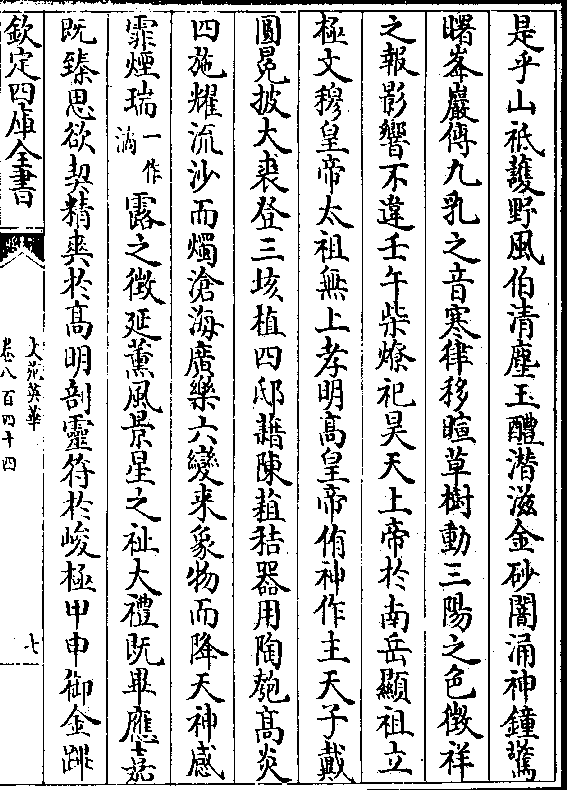 是乎山祗護野風伯清塵玉醴潛滋金砂闇涌神鐘驚
曙峯巖傳九乳之音寒律移暄草樹動三陽之色徴祥
之報影響不違壬午柴燎祀昊天上帝於南岳顯祖立
極文穆皇帝太祖無上孝明髙皇帝侑神作主天子戴
圓冕披大裘登三垓植四邸藉陳葅秸器用陶匏髙炎
四施耀流沙而燭滄海廣樂六變来象物而降天神感
霏煙瑞一作滴露之徴延薰風景星之祉大禮既畢應
既臻思欲契精爽於髙明剖靈符於峻極甲申御金
欽定四庫全書
文苑英華
卷八百四十四
七